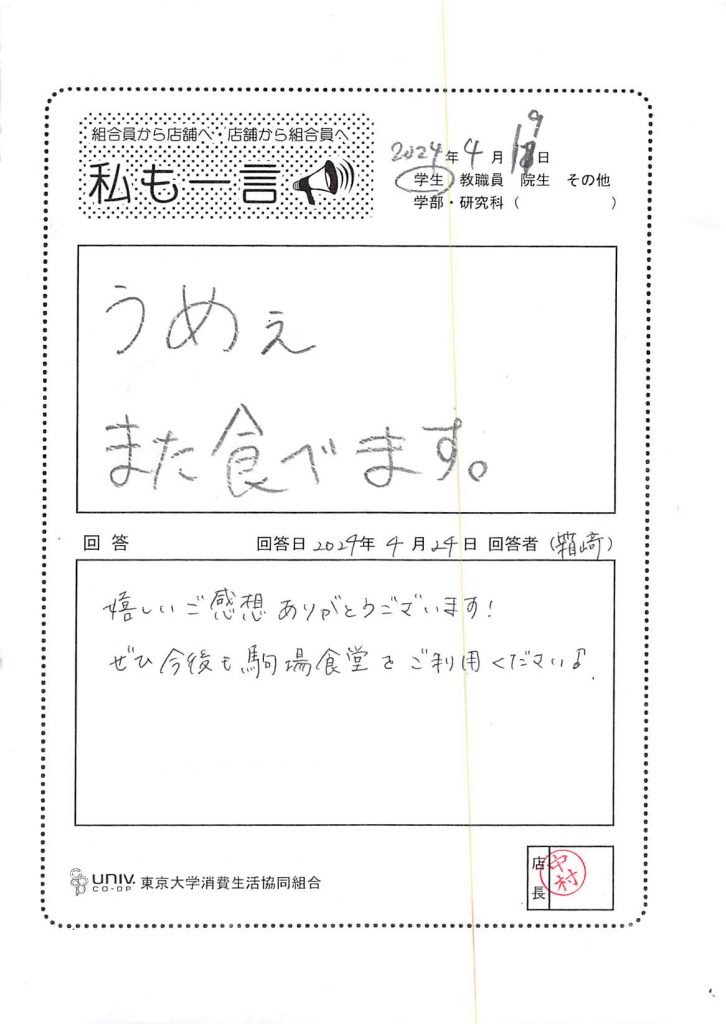 組合員から店舗へ・店舗から組合員へ
私も一言
2024年4月19日
学生 教職員 院生 その他
学部・研究科（ ）
うめぇ
また食べます。
回答 回答日2024年4月24日 回答者（箱崎）
嬉しいご感想ありがとうございます!
ぜひ今後も駒場食堂をご利用ください♪.
UNIV. CO-OP 東京大学消費生活協同組合
店長 中村